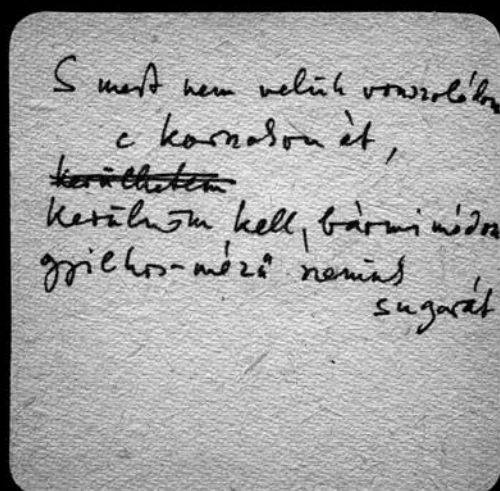 S mert nem velük vonszolódom
e korzokon át,
kerülhetem
kerülnöm kell, bármi módon
gyilkos-mézű szemük
sugarát